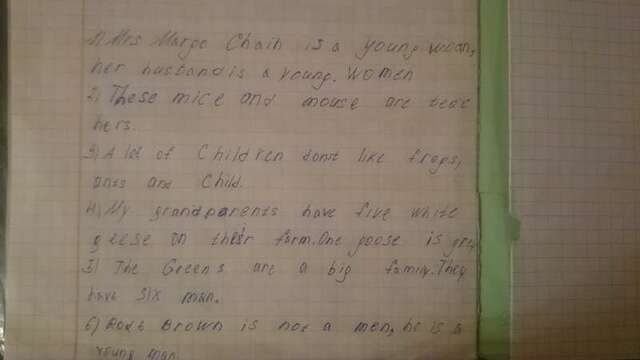 1) Mrs Margo Chain is a young woan,
her husband is a young. women
2) These mice and mouse are teac
hers.
3) A lot of Children dont like frogs,
ants and Child.
4) My grandparents have five white
geese on their farm. One goose is grey
5) The Greens are a big family. They
have six man.
6) Brown is not a men, he is a
young man.